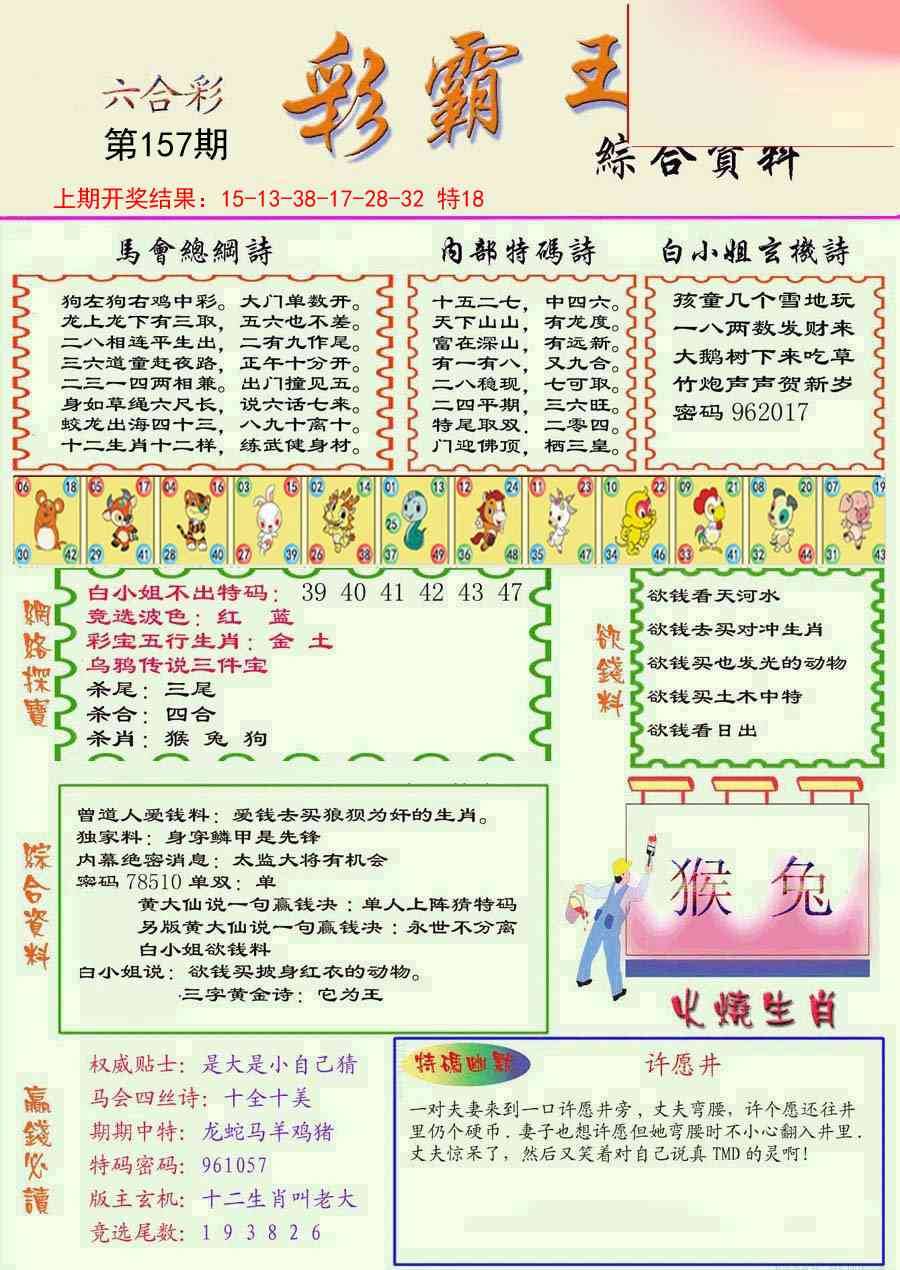 彩霸王
六合彩
第157期
綜合資料
上期开奖结果：15-13-38-17-28-32 特18
馬會總綱詩
狗左狗右鸡中彩。大门单数开。
龙上龙下有三取，五六也不差。
二八相连平生出，二有九作尾。
三六道童赶夜路，正午十分开。
二三一四两相兼。出门撞见五。
身如草绳六尺长，说六话七来。
蛟龙出海四十三，八九十离十。
十二生肖十二样，练武健身材。
內部特碼詩
十五二七，中四六。
天下山山，有龙度。
富在深山，有远新。
有一有八，又九合。
二八稳现，七可取。
二四平期，三六旺。
特尾取双．二零四。
门迎佛顶，栖三皇。
白小姐玄機詩
孩童几个雪地玩
一八两数发财来
大鹅树下来吃草
竹炮声声贺新岁
密码 962017
06 18 05 17 04 16 03 15 02 14 01 13 12 24 11 23 10 22 09 21 08 20 07 19
25
30 42 29 41 28 40 27 39 26 38 37 49 36 48 35 47 34 46 33 45 32 44 31 43
網路探寶
白小姐不出特码： 39 40 41 42 43 47
竞选波色：红 蓝
彩宝五行生肖：金 土
乌鸦传说三件宝
杀尾：三尾
杀合：四合
杀肖：猴 兔 狗
欲錢料
欲钱看天河水
欲钱去买对冲生肖
欲钱买也发光的动物
欲钱买土木中特
欲钱看日出
綜合資料
曾道人爱钱料：爱钱去买狼狈为奸的生肖。
独家料：身穿鳞甲是先锋
内幕绝密消息：太监大将有机会
密码 78510 单双：单
黄大仙说一句赢钱决：单人上阵猜特码
另版黄大仙说一句赢钱决：永世不分离
白小姐欲钱料
白小姐说：欲钱买披身红衣的动物。
三字黄金诗：它为王
猴 兔
火燒生肖
贏錢必讀
权威贴士：是大是小自己猜
马会四丝诗：十全十美
期期中特：龙蛇马羊鸡猪
特码密码：961057
版主玄机：十二生肖叫老大
竞选尾数：1 9 3 8 2 6
特碼幽默
许愿井
一对夫妻来到一口许愿井旁，丈夫弯腰，许个愿还往井
里仍个硬币．妻子也想许愿但她弯腰时不小心翻入井里．
丈夫惊呆了，然后又笑着对自己说真 TMD 的灵啊!